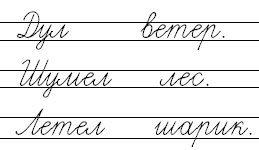 Дул ветер.
Шумел лес.
Летел шарик.